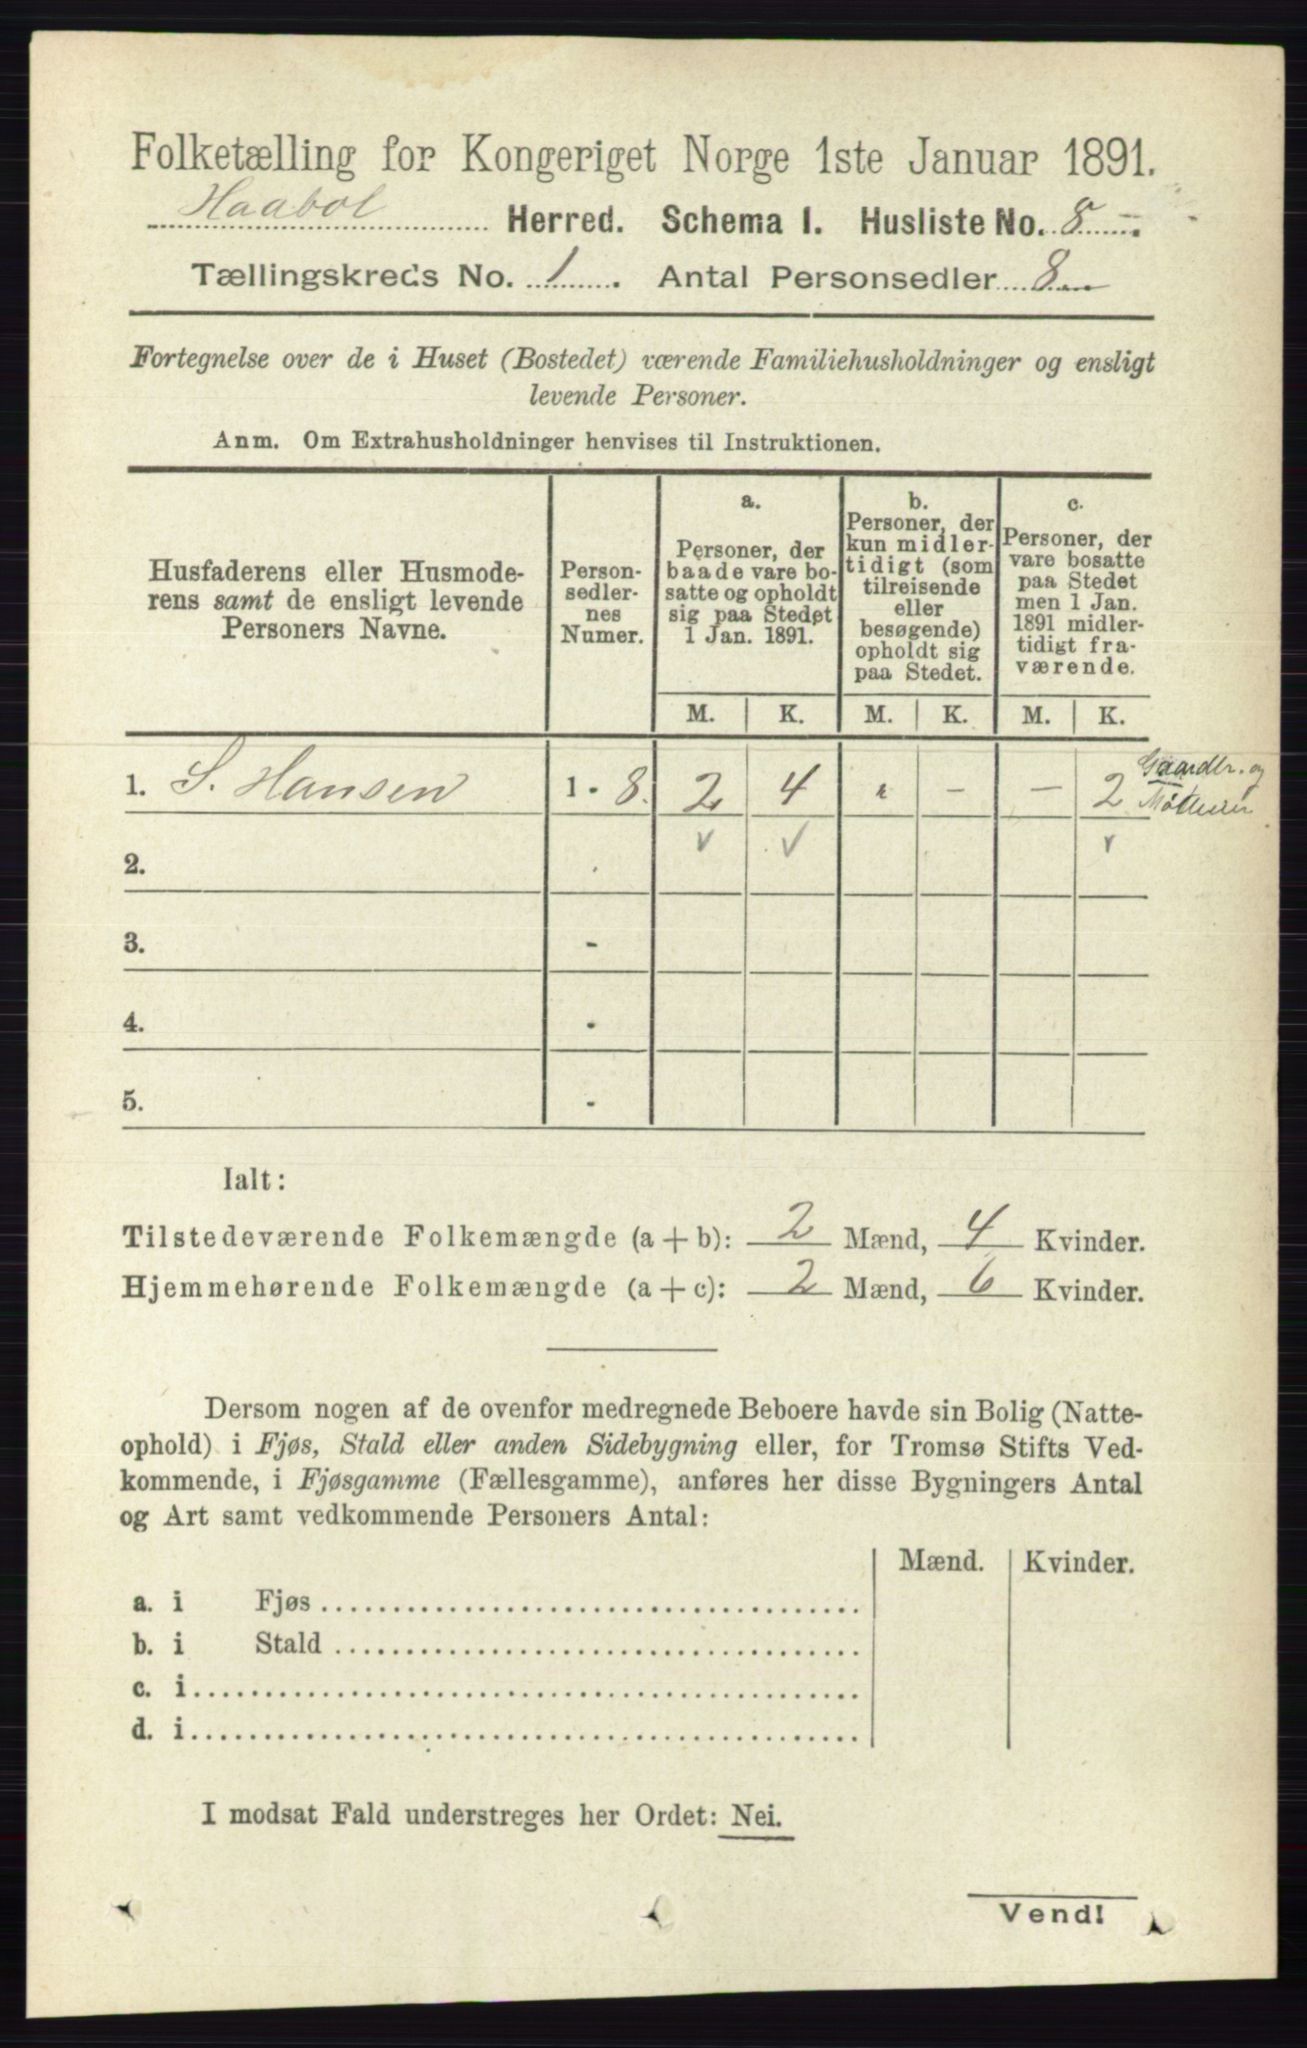 Folketælling for Kongeriget Norge 1ste Januar 1891.
Haabøl Herred. Schema I. Husliste No. 8
Tællingskreds No. 1. Antal Personsedler 8
Fortegnelse over de i Huset (Bostedet) værende Familiehusholdninger og ensligt
levende Personer.
Anm. Om Extrahusholdninger henvises til Instruktionen.
Husfaderens eller Husmode-
rens samt de ensligt levende
Personers Navne.
Person-
sedler-
nes
Numer.
a.
Personer, der
baade vare bo-
satte og opholdt
sig paa Stedet
1 Jan. 1891.
b.
Personer, der
kun midler-
tidigt (som
tilreisende
eller
besøgende)
opholdt sig
paa Stedet.
c.
Personer, der
vare bosatte
paa Stedet
men 1 Jan.
1891 midler-
tidigt fra-
værende.
M. K. M. K. M. K.
1. S. Hansen 1 - 8. 2 4 - - - 2 Gaardbr. og
2.
3. -
4. -
5. -
Ialt:
Tilstedeværende Folkemængde (a + b): 2 Mænd, 4 Kvinder.
Hjemmehørende Folkemængde (a + c): 2 Mænd, 6 Kvinder.
Dersom nogen af de ovenfor medregnede Beboere havde sin Bolig (Natte-
ophold) i Fjøs, Stald eller anden Sidebygning eller, for Tromsø Stifts Ved-
kommende, i Fjøsgamme (Fællesgamme), anføres her disse Bygningers Antal
og Art samt vedkommende Personers Antal:
Mænd. Kvinder.
a. i Fjøs
b. i Stald
c. i
d. i
I modsat Fald understreges her Ordet: Nei.
Vend!